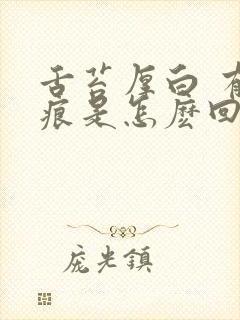 舌苔厚白 有
痕是怎麽回
庞光鎮